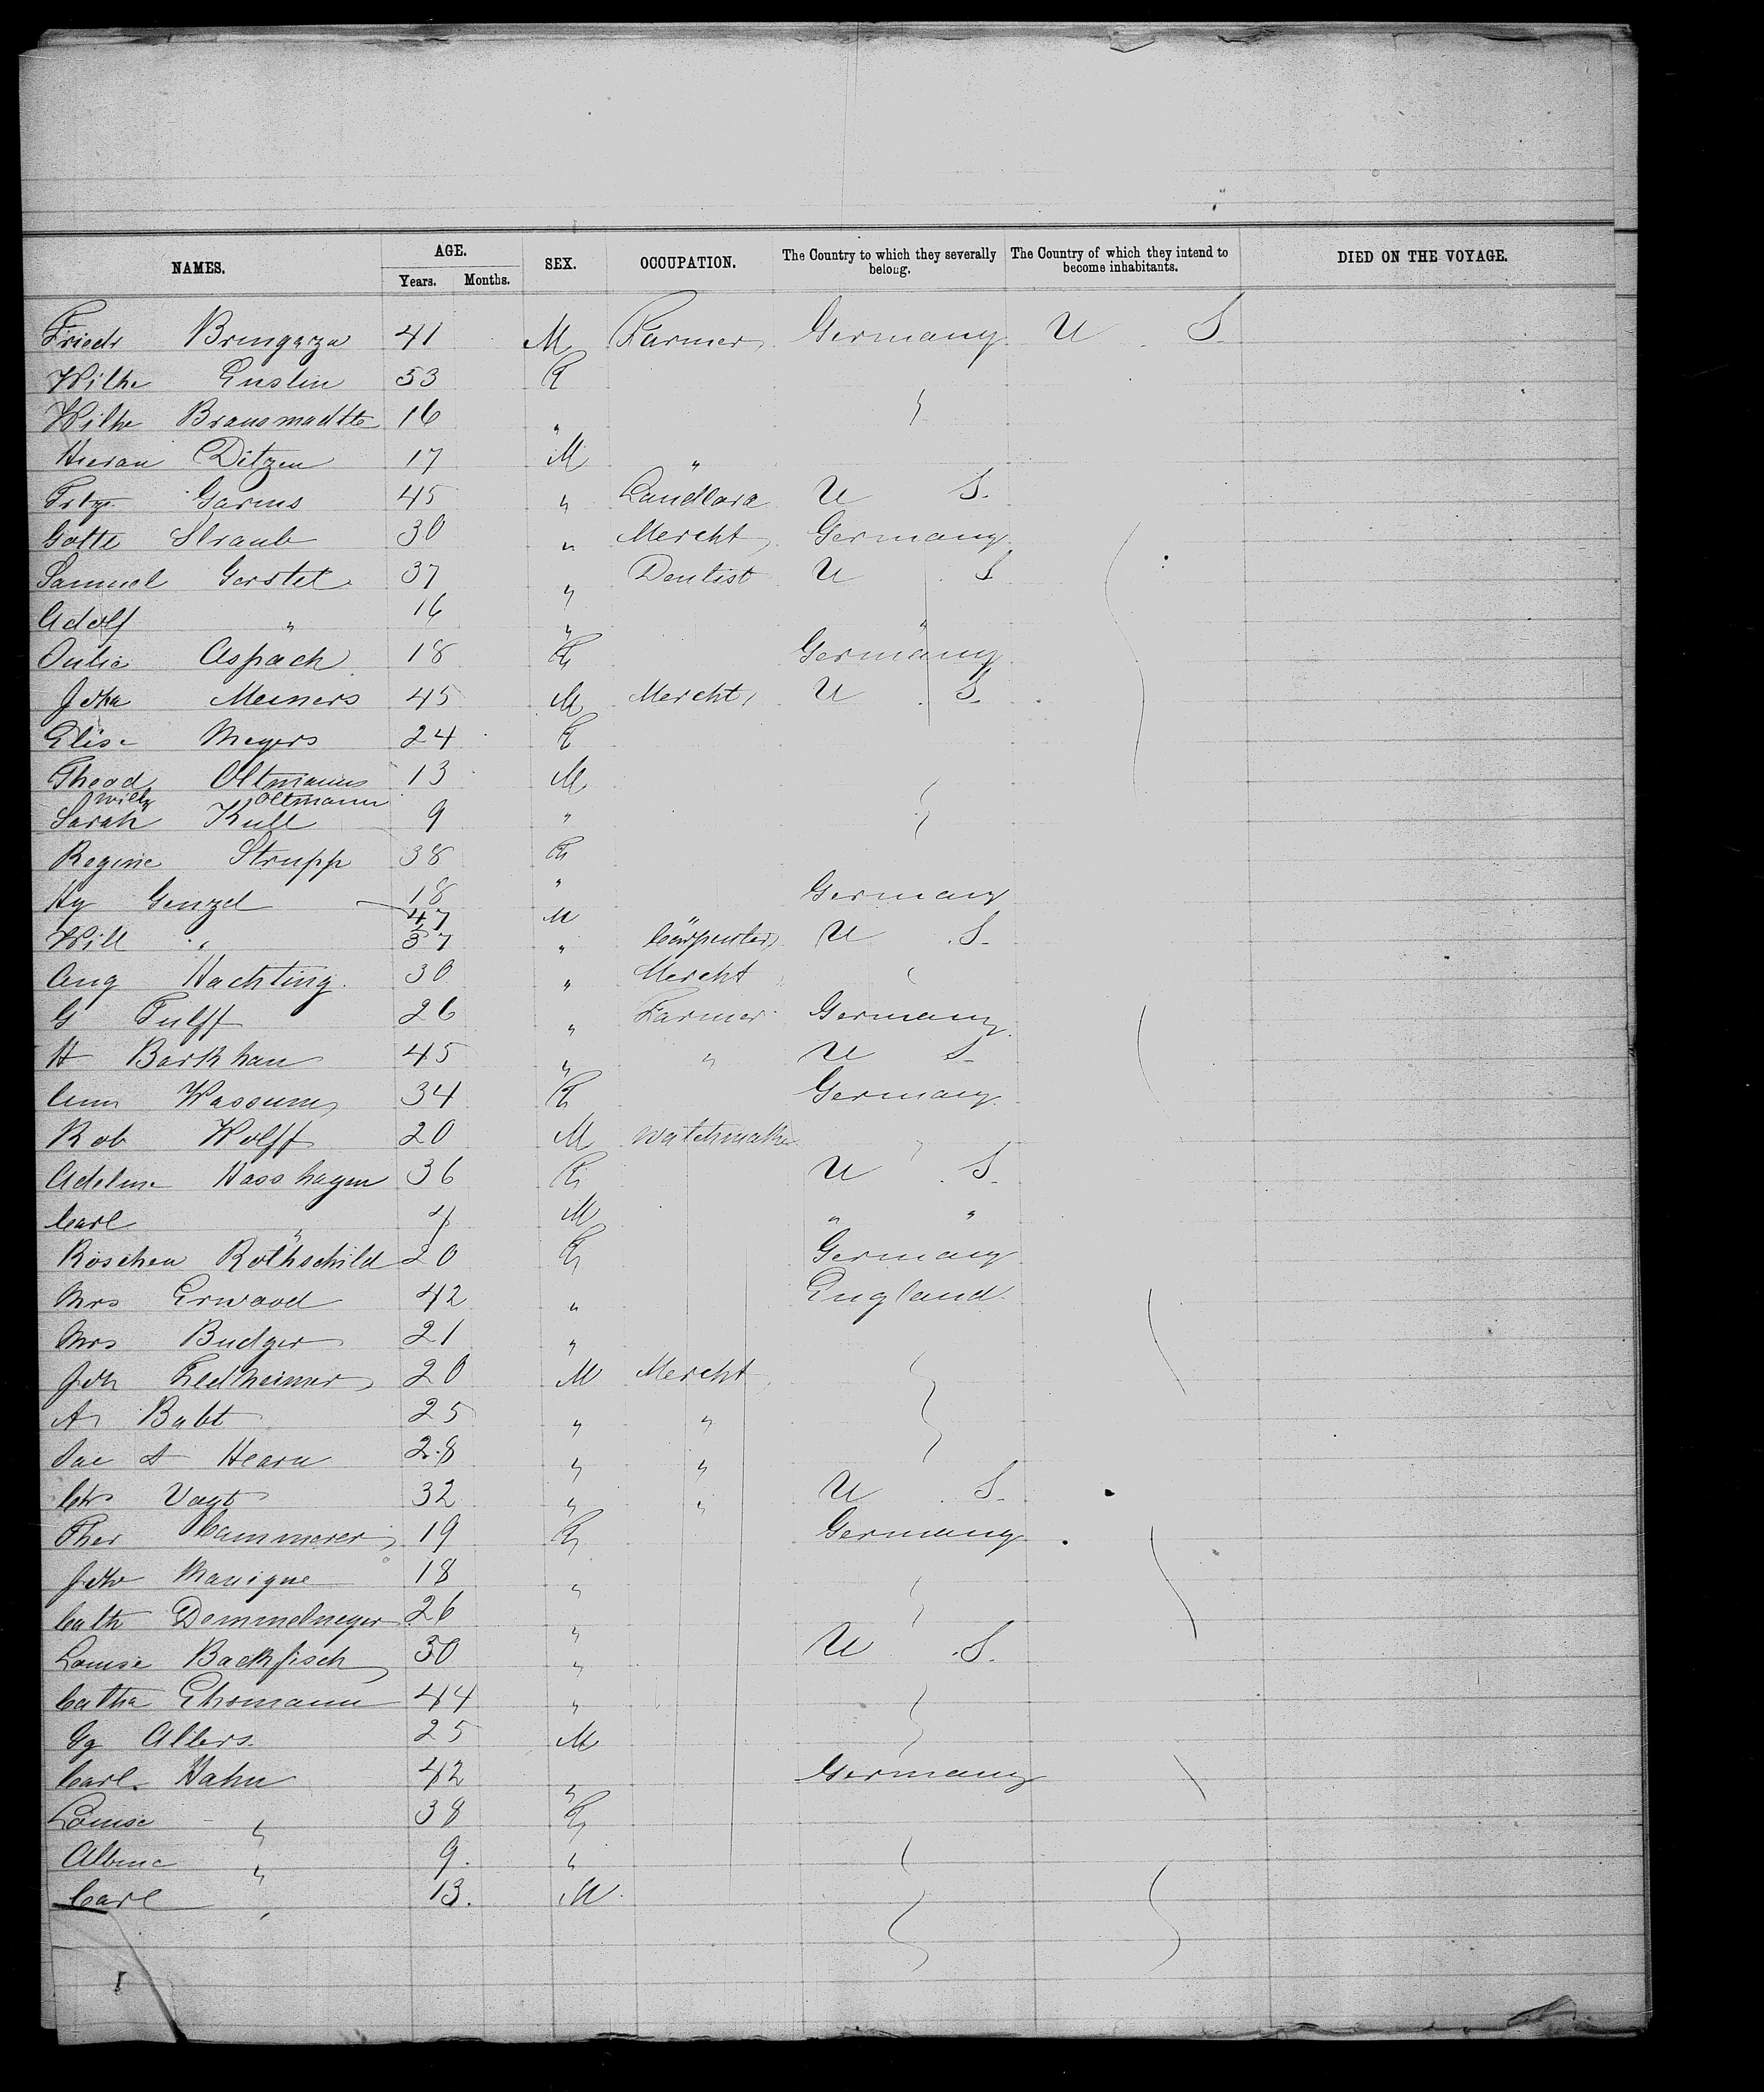 NAMES. AGE. SEX. OCCUPATION. The Country to which they severally belong. The Country of which they intend to become inhabitants. DIED ON THE VOYAGE.
Years. Months.
Friedr 41 M Farmer Germany U S
Wilhe 53 F
Wilhe 16 "
Ditzen 17 M "
Garms 45 " U S.
Gotte Straub 30 " Mercht Germany
Samuel Gerstel 37 " Dentist U S
Adolf " 16 " "
Julie Aspach 18 F Germany
Joha Meiners 45 M Mercht U S.
Elise Meyers 24 F
Theod Oltmanns 13 M
Willy Oltmann
Sarah Kull 9 "
Regine Strupp 38 F
Hy Genzel 18 " Germany
47 M
Will " 37 " Carpenter U S.
Aug Hachting 30 " Mercht
G Tulff 26 " Farmer Germany
H Barkhau 45 " " U S
Wassum 34 F Germany
Rob Wolff 20 M Watchmaker
Adeline Hasshagen 36 F U S
Carl " M " "
Röschen Rothschild 20 F Germany
Mrs Erwood 42 " England
Mrs Budger 21 "
Joh 20 M Mercht
A Babt 25 " "
Hearn 28 " "
Chr Vagt 32 " " U S.
Ther Cammerer 19 F Germany
Manigue 18 "
Cath Dommelmeyer 26 "
Louise Backfisch 30 " U S.
Catha Ehrmann 44 "
Gg Allers. 25 M
Carl Hahn 42 " Germany
Louise " 38 F
Albine " 9. "
Carl " 13. M